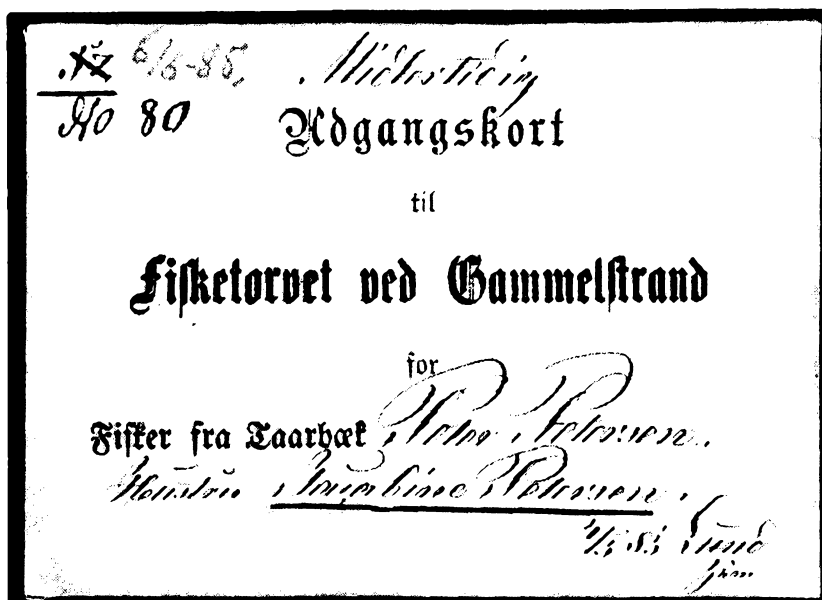 6/6-85, Midlertidig
No 80
Adgangskort
til
Fisketorvet ved Gammelstrand
for
Fisker fra Taarbæk Peter Petersen.
Hustru Petersen.
Lund